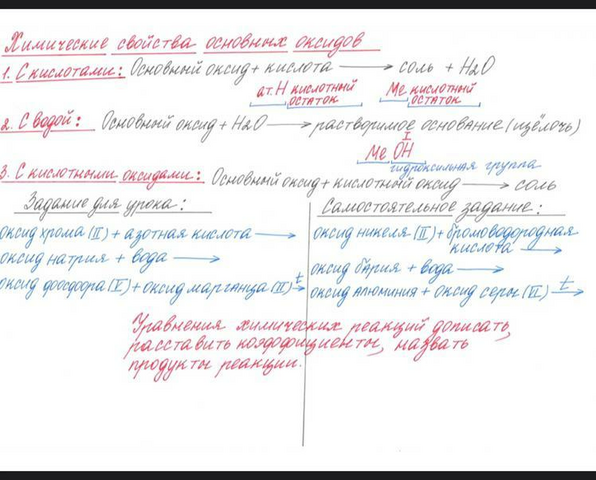 Химические свойства основных оксидов
1. С кислотами: Основный оксид + кислота → соль + H2O
ат. H кислотный остаток
Me кислотный остаток
2. С водой: Основный оксид + H2O → растворимое основание (щёлочь)
I
Me OH
гидроксильная группа
3. С кислотными оксидами: Основный оксид + кислотный оксид → соль
Задание для урока:
оксид хрома (II) + азотная кислота →
оксид натрия + вода →
оксид фосфора (V) + оксид марганца (II) t→
Самостоятельное задание:
оксид никеля (II) + бромоводородная
кислота →
оксид бария + вода →
оксид алюминия + оксид серы (VI) t→
Уравнения химических реакций дописать,
расставить коэффициенты, назвать
продукты реакции.